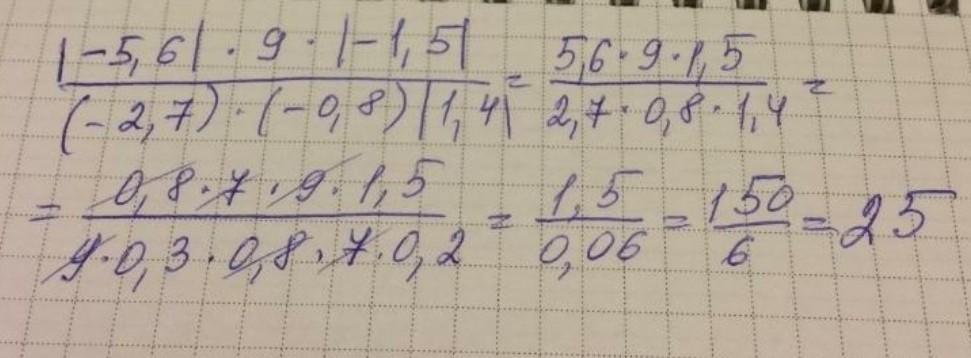 |-5,6| · 9 · |-1,5| / (-2,7) · (-0,8) |1,4| = 5,6 · 9 · 1,5 / 2,7 · 0,8 · 1,4 =
= 0,8 · 7 · 9 · 1,5 / 9 · 0,3 · 0,8 · 7 · 0,2 = 1,5 / 0,06 = 150 / 6 = 25